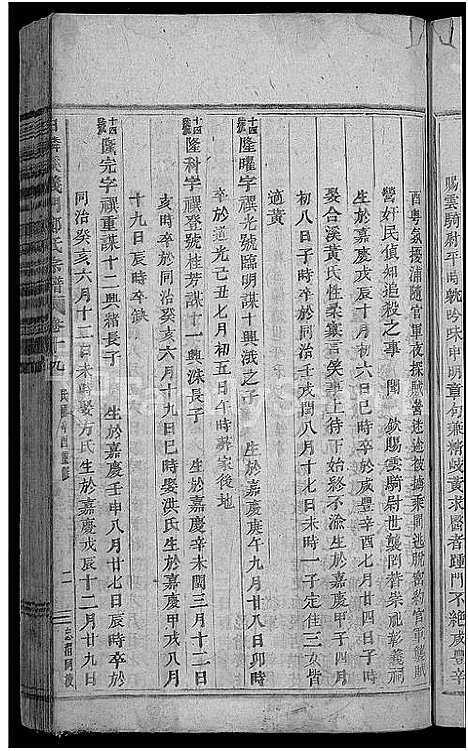 賜雲騎尉平時躭吟咏申明章句兼精岐黃求醫者踵門不絕咸豐辛
酉粵氛擾浦隨官軍夜探賊營迷途被擄乘間逃脫密約官軍襲賊
營奸民偵知追殺之事 聞 欽賜雲騎尉世襲罔替崇祀彰義祠
生於嘉慶戊辰十月初六日申時卒於咸豐辛酉七月廿四日子時
娶合溪黃氏性柔寡言笑事上待下始終不渝生於嘉慶甲子四月
初八日子時卒於同治壬戌閏八月十七日未時一子定佳三女皆
適黃
十四 隆曜字禩光號臨明謀十興渽之子 生於嘉慶庚午九月廿八日卯時
卒於道光己丑七月初五日午時葬家後地
十四 隆科字禩登號桂芳謀十一興洙長子 生於嘉慶辛未閏三月十二日
亥時卒於同治癸亥六月十九日巳時娶洪氏生於嘉慶甲戌八月
十九日辰時卒缺
十四 隆完字禩重謀十二興緒長子 生於嘉慶壬申八月廿七日辰時卒於
同治癸亥六月十二日未時娶方氏生於嘉慶戊辰十二月廿九日
鄭氏宗譜 卷十九